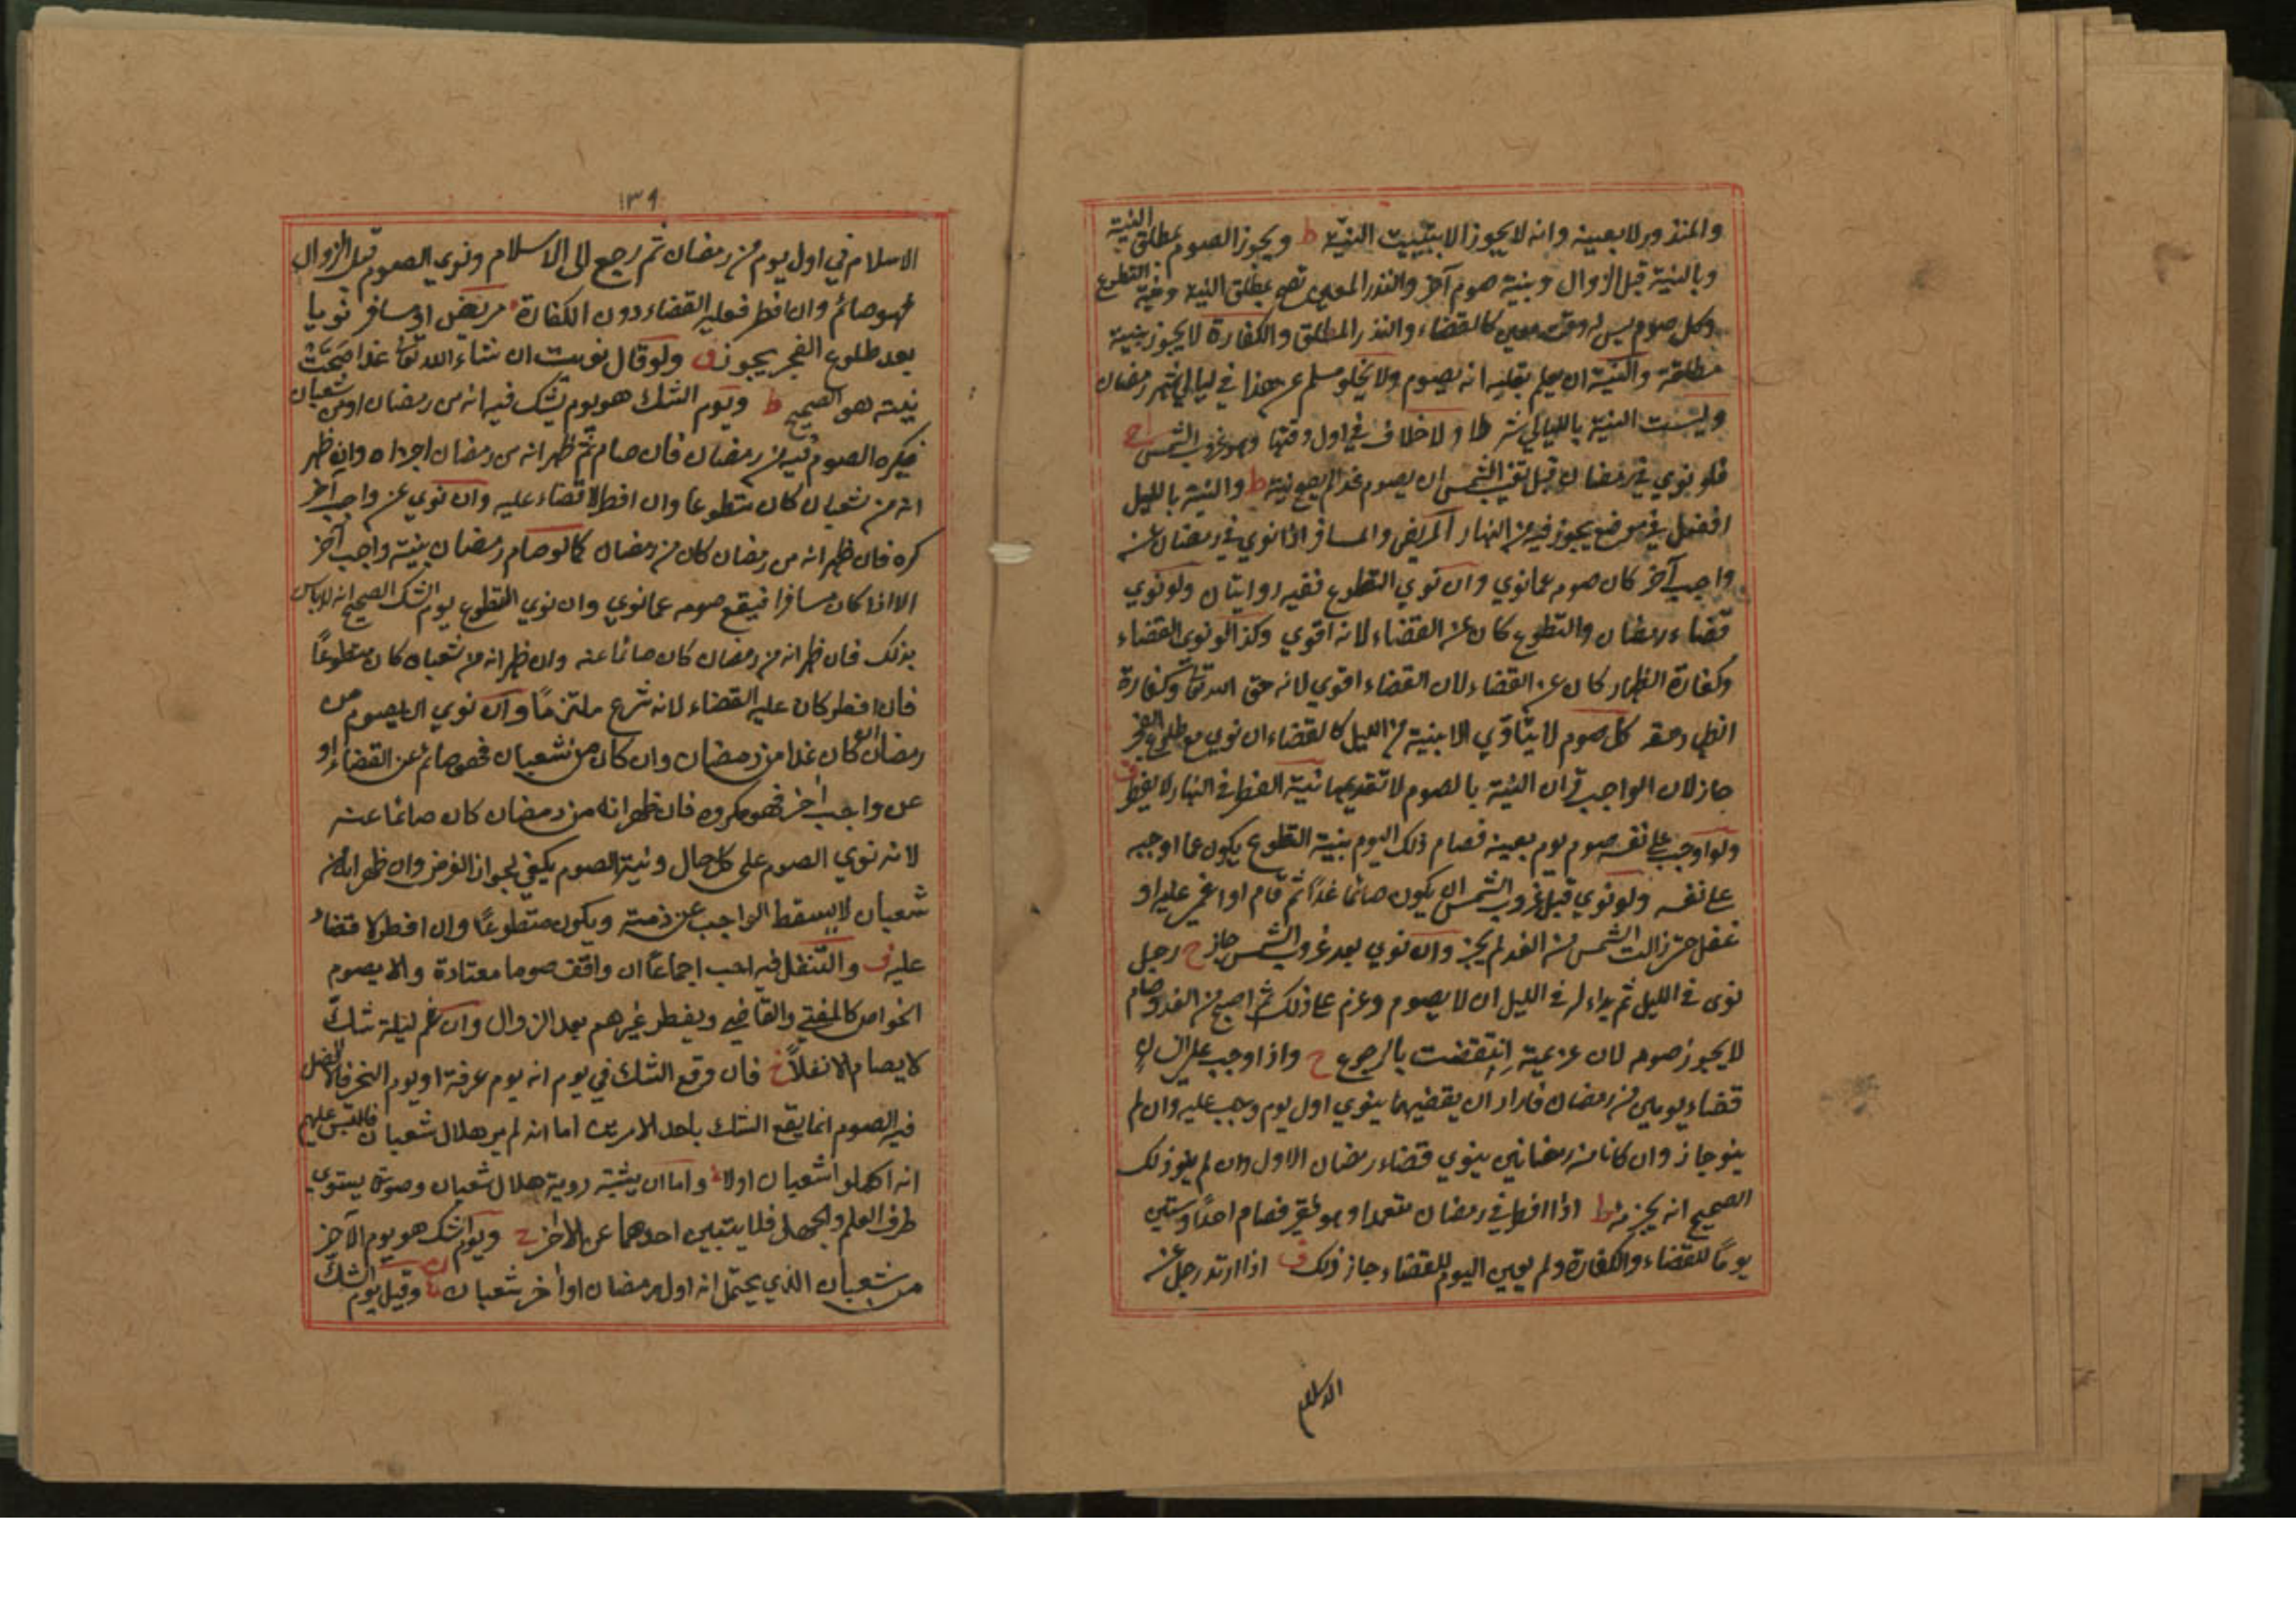 والمنذور لا بعينه وانه لا يجوز الا بتبييت النية ط ويجوز الصوم بمطلق النية
وبالنية قبل الزوال وبنية صوم آخر والنذر المعين تصح بمطلق النية ونية التطوع
وكل صوم ليس له وقت معين كالقضاء والنذر المطلق والكفارة لا يجوز بنية
مطلقة والنية ان يعلم بقلبه انه يصوم ولا يخلو مسلم عن هذا في ليالي شهر رمضان
وليست النية بالليالي شرطا ولا خلاف في اول وقتها وهو غروب الشمس
فلو نوي في رمضان قبل تغيب الشمس ان يصوم غدا لم يصح نيته ط والنية بالليل
افضل في موضع يجوز فيه من النهار المريض والمسافر اذا نوي في رمضان عن
واجب آخر كان صوم عما نوي وان نوي التطوع ففيه روايتان ولو نوي
قضاء رمضان والتطوع كان عن القضاء لانه اقوي وكذا لو نوي القضاء
وكفارة الظهار كان عن القضاء لان القضاء اقوي لانه حق الله تعا وكفارة
الظهار حقه كل صوم لا يتأدي الا بنية من الليل كالقضاء ان نوي مع طلوع الفجر
جاز لان الواجب قران النية بالصوم لا تقديمها نية الفطر في النهار لا يفطر ف
ولو اوجب علي نفسه صوم يوم بعينه فصام ذلك اليوم بنية التطوع يكون عما اوجبه
علي نفسه ولو نوي قبل غروب الشمس ان يكون صائما غدًا ثم قام او اغمي عليه او
غفل حتي زالت الشمس من الغد لم يجز وان نوي بعد غروب الشمس جاز ح رجل
نوى في الليل ثم بداء له في الليل ان لا يصوم وعزم علي ذلك ثم اصبح من الغد وصام
لا يجوز صومه لان عزيمته انتقضت بالرجوع ح واذا وجب علي
قضاء يومين من رمضان فاراد ان يقضيهما ينوي اول يوم وجب عليه وان لم
ينو جاز وان كانا من رمضانين ينوي قضاء رمضان الاول وان لم ينو ذلك
الصحيح انه يجزيه ط اذا افطر في رمضان متعمدا وهو فقير فصام احدًا وستين
يومًا للقضاء والكفارة ولم يعين اليوم للقضاء جاز ذلك ف اذا ارتد رجل عن
الاسلام
١٣٩
الاسلام في اول يوم من رمضان ثم رجع الى الاسلام ونوي الصوم قبل الزوال
فهو صائم وان افطر فعليه القضاء دون الكفارة مريض او مسافر نويا
بعد طلوع الفجر يجوز ف ولو قال نويت ان شاء الله تعا غدا صحت
نيته هو الصحيح ط ويوم الشك هو يوم يشك فيه انه من رمضان او من شعبان
فيكره الصوم فيه من رمضان فان صام ثم ظهر انه من رمضان اجزاه وان ظهر
انه من شعبان كان متطوعا وان افطر لا قضاء عليه وان نوي عن واجب آخر
كره فان ظهر انه من رمضان كان من رمضان كما لو صام رمضان بنية واجب آخر
الا اذا كان مسافرا فيقع صومه عما نوي وان نوي التطوع يوم الشك الصحيح انه لا باس
بذلك فان ظهر انه من رمضان كان صائما عنه وان ظهر انه من شعبان كان متطوعًا
فان افطر كان عليه القضاء لانه شرع ملتزمًا وان نوي ان يصوم من
رمضان لو كان غدا من رمضان وان كان من شعبان فهو صائم عن القضاء او
عن واجب آخر فهو مكروه فان ظهر انه من رمضان كان صائما عنه
لانه نوي الصوم على كل حال ونية الصوم يكفي لجواز الفرض وان ظهر انه من
شعبان لا يسقط الواجب عن ذمته ويكون متطوعًا وان افطر لا قضاء
عليه ف والتنفل فيه احب اجماعًا ان وافق صوما معتادة والا يصوم
الخواص كالمفتي والقاضي ويفطر غيرهم بعد الزوال وان غم ليلة شك
لا يصام الا نفلاً خ فان وقع الشك في يوم انه يوم عرفة او يوم النحر فالافضل
فيه الصوم انما يقع الشك باحد الامرين اما انه لم ير هلال شعبان فالتبس عليهم
انه اكملوا شعبان اولا واما ان يثبته روية هلال شعبان وصورته يستوي
طرف العلم والجهل فلا يتبين احدهما عن الآخر ح ويوم الشك هو يوم الآخر
من شعبان الذي يحتمل انه اول رمضان او آخر شعبان وقيل يوم الشك